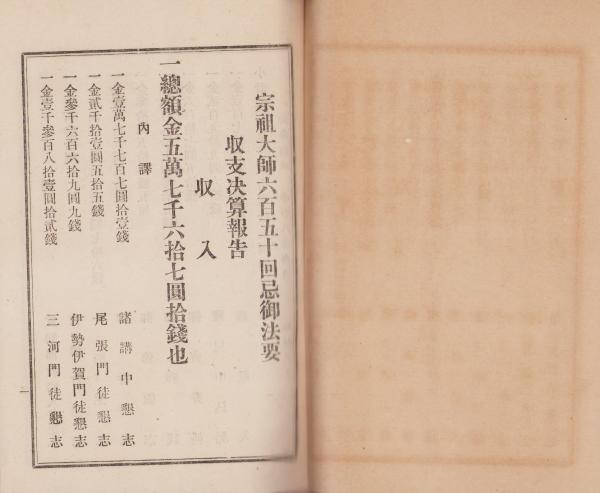 宗祖大師六百五十回忌御法要
収支決算報告
収入
一總額金五萬七千六拾七圓拾錢也
內譯
一金壹萬七千七百七圓拾壹錢 諸講中懇志
一金貳千拾壹圓五拾五錢 尾張門徒懇志
一金參千六百六拾九圓九錢 伊勢伊賀門徒懇志
一金壹千參百八拾壹圓拾貳錢 三河門徒懇志
一